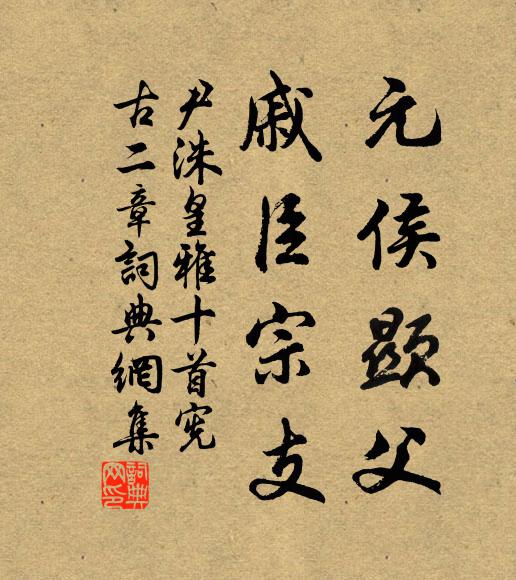 元侯顯父
戚臣宗支
尹洙皇雅十首憲
古二章詞典網集
詞典網印